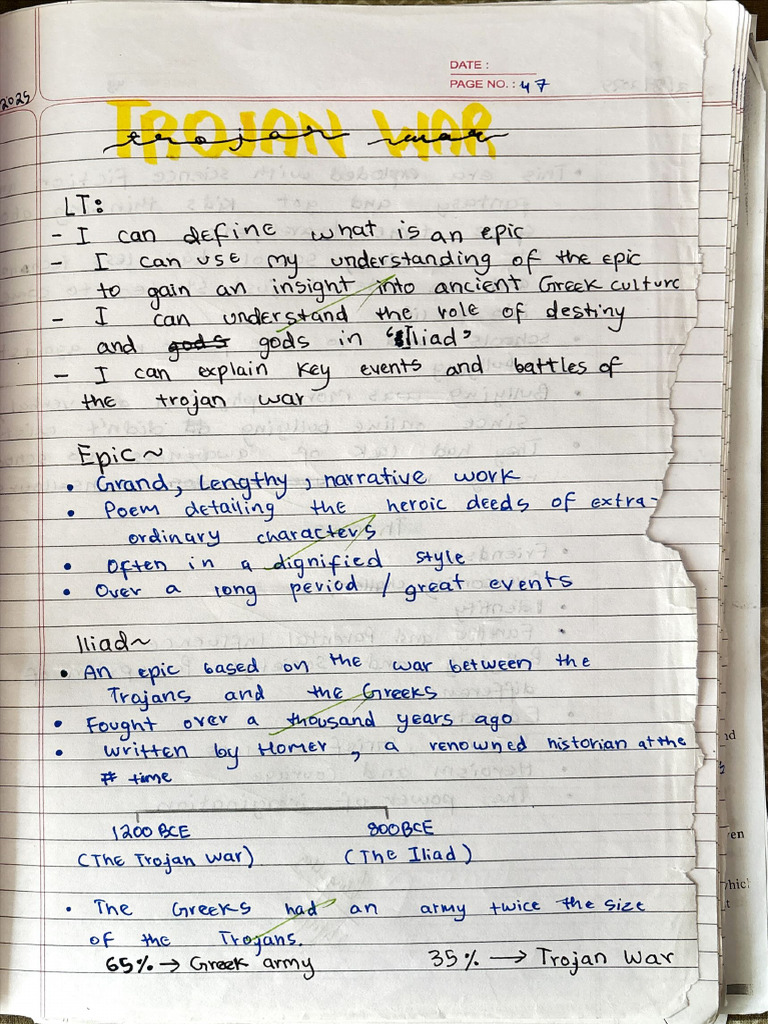 DATE :
PAGE NO. : 47
2025
TROJAN WAR
trojan war
LT:
- I can define what is an epic
- I can use my understanding of the epic
to gain an insight into ancient Greek culture
- I can understand the role of destiny
and gods gods in "Iliad"
- I can explain key events and battles of
the trojan war
Epic ~
• Grand, Lengthy, narrative work
• Poem detailing the heroic deeds of extra-
ordinary characters
• Often in a dignified style
• Over a long period / great events
Iliad ~
• An epic based on the war between the
Trojans and the Greeks
• Fought over a thousand years ago
• Written by Homer, a renowned historian at the
time
1200 BCE 800 BCE
(The Trojan War) (The Iliad)
• The Greeks had an army twice the size
of the Trojans.
65% → Greek army 35% → Trojan War